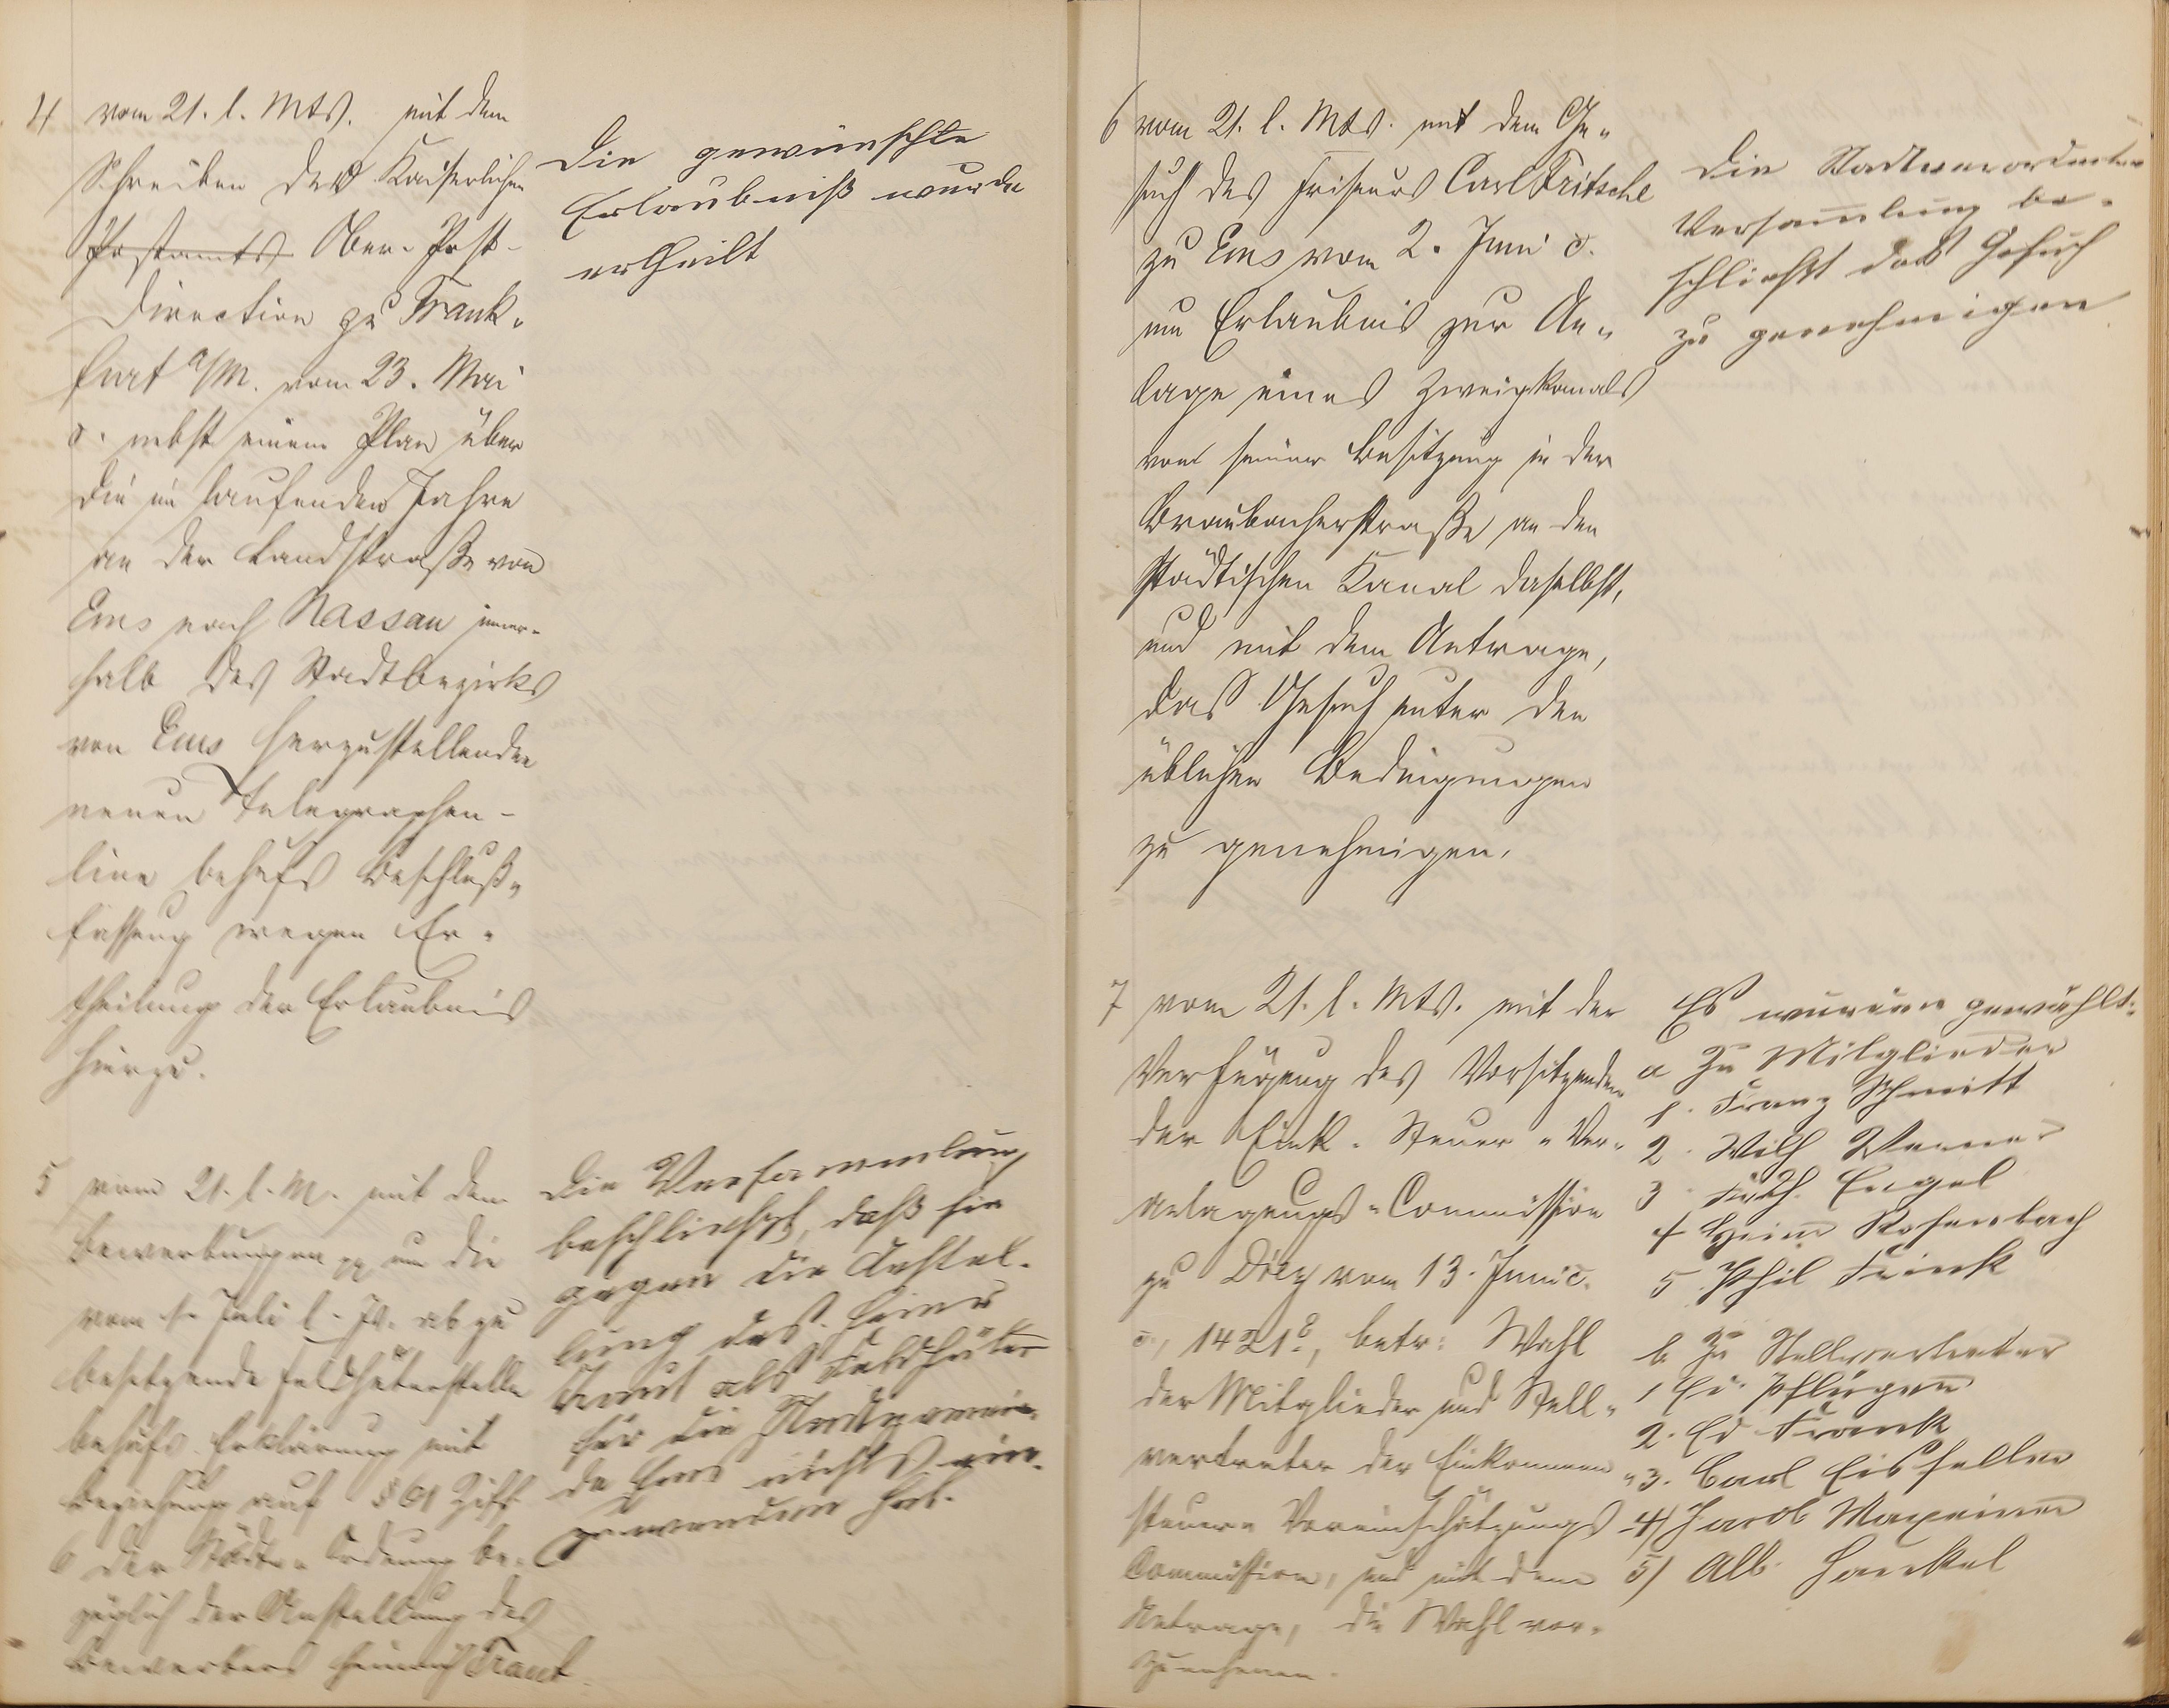 4 vom 21. l. Mts. mit dem
Schreiben der Kaiserlichen
Postamts Ober-Post-
direction zu Frank-
furt a/M. vom 23. Mai
c. nebst einem Plan über
die im laufenden Jahre
an der Landstraße von
Ems nach Nassau inner-
halb des Stadtbezirks
von Ems herzustellenden
neuen Telegraphen-
linie behufs Beschluß-
fassung wegen Er-
theilung der Erlaubnis
hierzu.
Die gewünschte
Erlaubniß wurde
ertheilt
5 vom 21. l. M. mit dem
Bewerbungen pp um die
vom 1. Juli l. Js. ab zu
besetzende Feldhüterstelle
behufs Erklärung mit
Beziehung auf § 61 Ziff.
6 der Städte-Ordnung be-
züglich der Anstellung des
Bewerbers Heinrich
Die Versammlung
beschließt, daß sie
gegen die Anstel-
lung des Heinr
als Feldhüter
für die Stadtgemein-
de Ems nichts ein-
zuwenden hab.
6 vom 21. l. Mts. mit dem Ge-
such des Friseurs Carl Fritsche
zu Ems vom 2. Juni c.
um Erlaubnis zur An-
lage eines Zweigkanals
von seiner Besitzung in der
Braubacherstraße an den
städtischen Kanal daselbst,
und mit dem Antrage,
das Gesuch unter den
üblichen Bedingungen
zu genehmigen.
Die Stadtverordneten
Versammlung be-
schließt das Gesuch
zu genehmigen
7 vom 21. l. Mts. mit der
Verfügung des Vorsitzenden
der Eink.-Steuer-Ver-
anlagungs-Commission
zu Diez vom 13. Juni c.
1421, betr: Wahl
der Mitglieder und Stell-
vertreter der Einkommen-
steuer-Voreinschätzungs
Commission, und mit dem
Antrage, die Wahl vor-
zunehmen.
Es wurden gewählt:
a Zu Mitglieder
1. Franz Schmitt
2. Wilh
3. Engel
4 Heinr Rosenbach
5. Phil Finck
b Zu Stellvertreter
1 Ed.
2. Ed Franck
3. Carl Eisfeller
4) Jacob Maxeiner
5) Alb.